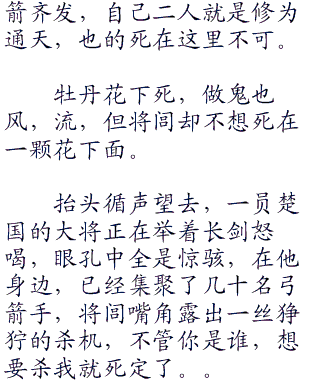 箭齐发，自己二人就是修为
通天，也的死在这里不可。
牡丹花下死，做鬼也
风，流，但将闾却不想死在
一颗花下面。
抬头循声望去，一员楚
国的大将正在举着长剑怒
喝，眼孔中全是惊骇，在他
身边，已经集聚了几十名弓
箭手，将闾嘴角露出一丝狰
狞的杀机，不管你是谁，想
要杀我就死定了。。